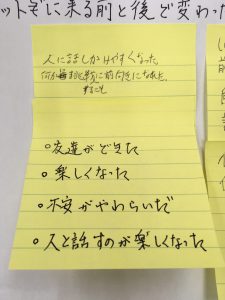 ットぞに来る前と後で変わった
人に話しかけやすくなった
何か 挑戦に前向きになれた。
すること
○友達ができた
○楽しくなった
○不安がやわらいだ
○人と話すのが楽しくなった